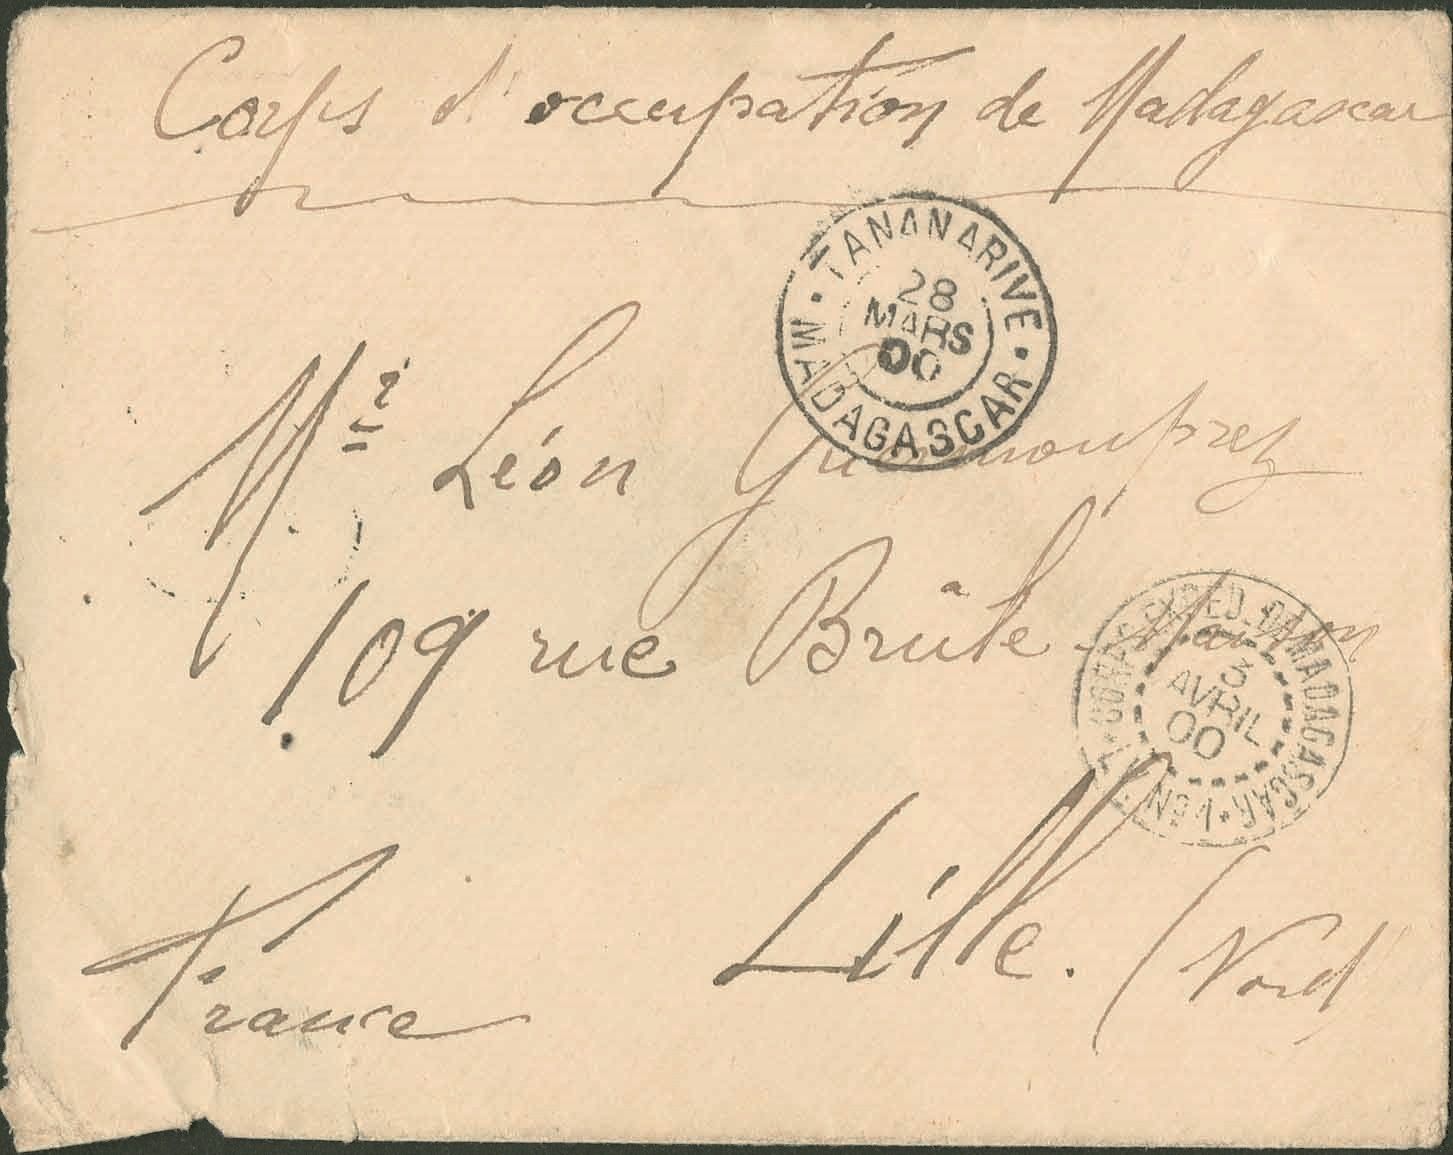 Corps d'occupation de Madagascar
TANANARIVE
28
MARS
00
MADAGASCAR
Mr Léon
109 rue Brûle Maison
CORPS EXPED. DE MADAGASCAR
3
AVRIL
00
Lille. (Nord)
France